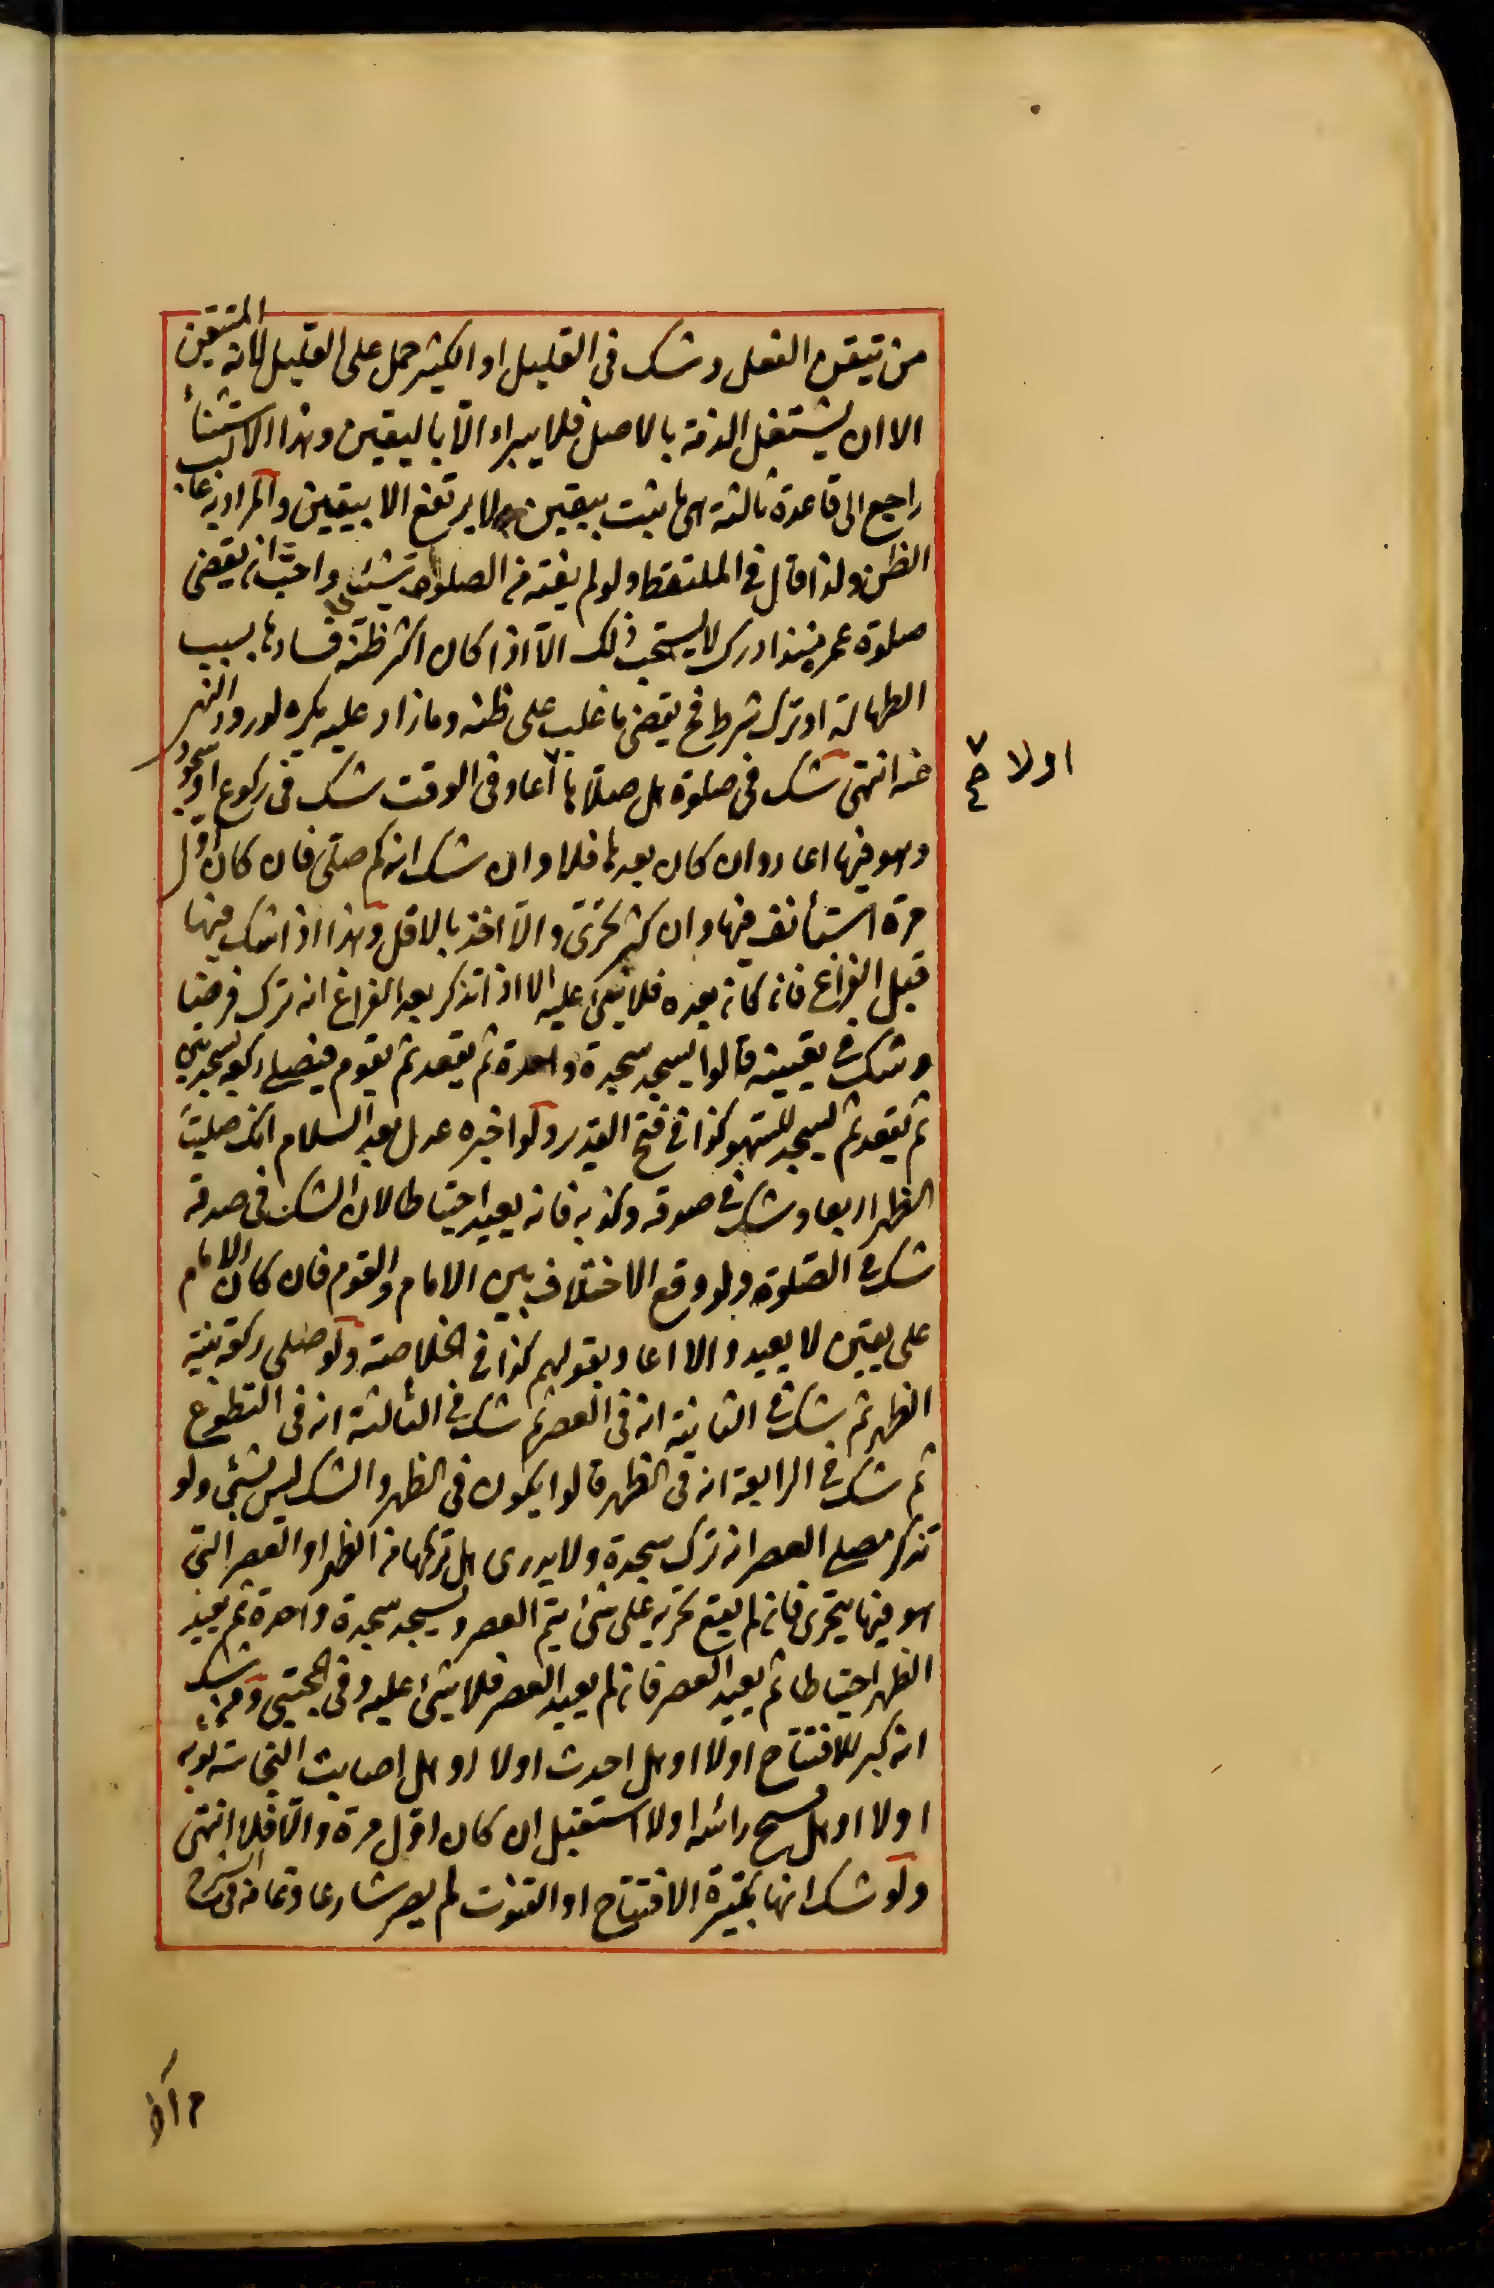 من تيقن الفعل وشك فى القليل او الكثير حمل على القليل لانه المتيقن
الا ان يشتغل الذمة بالاصل فلا يبراء الّا باليقين وهذا الاستثناء
راجع الى قاعدة ثالثة هى ما ثبت بيقين لا يرتفع الا بيقين والمراد به غالب
الظن ولذا قال فى الملتقط ولو لم يفته من الصلوة شئ واحبّ ان يقضى
صلوة عمره منذ ادرك لا يستحب ذلك الّا اذا كان اكثر ظنّه فسادها بسبب
الطهارة او ترك شرط فح يقضى ما غلب على ظنه وما زاد عليه يكره لورود النهى
عنه انتهى شك فى صلوة هل صلّاها اعاد فى الوقت شك فى ركوع او سجود
وهو فيها اعاد وان كان بعدها فلا وان شك انه كم صلّى فان كان اول
مرة استأنف فيها وان كثر تحرّى والّا اخذ بالاقل وهذا اذا شك فيها
قبل الفراغ فان كان بعده فلا شئ عليه الا اذا تذكر بعد الفراغ انه ترك فرضا
وشك فى تعيينه قالوا يسجد سجدة واحدة ثم يقعد ثم يقوم فيصلى ركعة بسجدتين
ثم يقعد ثم يسجد للسهو كذا فى فتح القدير ولو اخبره عدل بعد السلام انك صليت
الظهر اربعا وشك فى صدقه وكذبه فانه يعيد احتياطا لان الشك فى صدقه
شك فى الصّلوة ولو وقع الاختلاف بين الامام والقوم فان كان الامام
على يقين لا يعيد والا اعاد بقولهم كذا فى الخلاصة ولو صلى ركعة بنية
الظهر ثم شك فى الثانية انه فى العصر ثم شك فى الثالثة انه فى التطوع
ثم شك فى الرابعة انه فى الظهر قالوا يكون فى الظهر والشك ليس بشئ ولو
تذكر مصلى العصر انه ترك سجدة ولا يدرى هل تركها من الظهر او العصر التى
هو فيها يتحرى فان لم يقع تحريه على شئ يتم العصر ويسجد سجدة واحدة ثم يعيد
الظهر احتياطا ثم يعيد العصر فان لم يعيد العصر فلا شئ عليه وفى المجتبى ومن شك
انه كبر للافتتاح اولا او هل احدث اولا او هل اصابت النجاسة ثوبه
اولا او هل مسح رأسه اولا استقبل ان كان اوّل مرة والّا فلا انتهى
ولو شك انها تكبيرة الافتتاح او القنوت لم يصر شارعا وتمامه فى الشرح
اولا صح